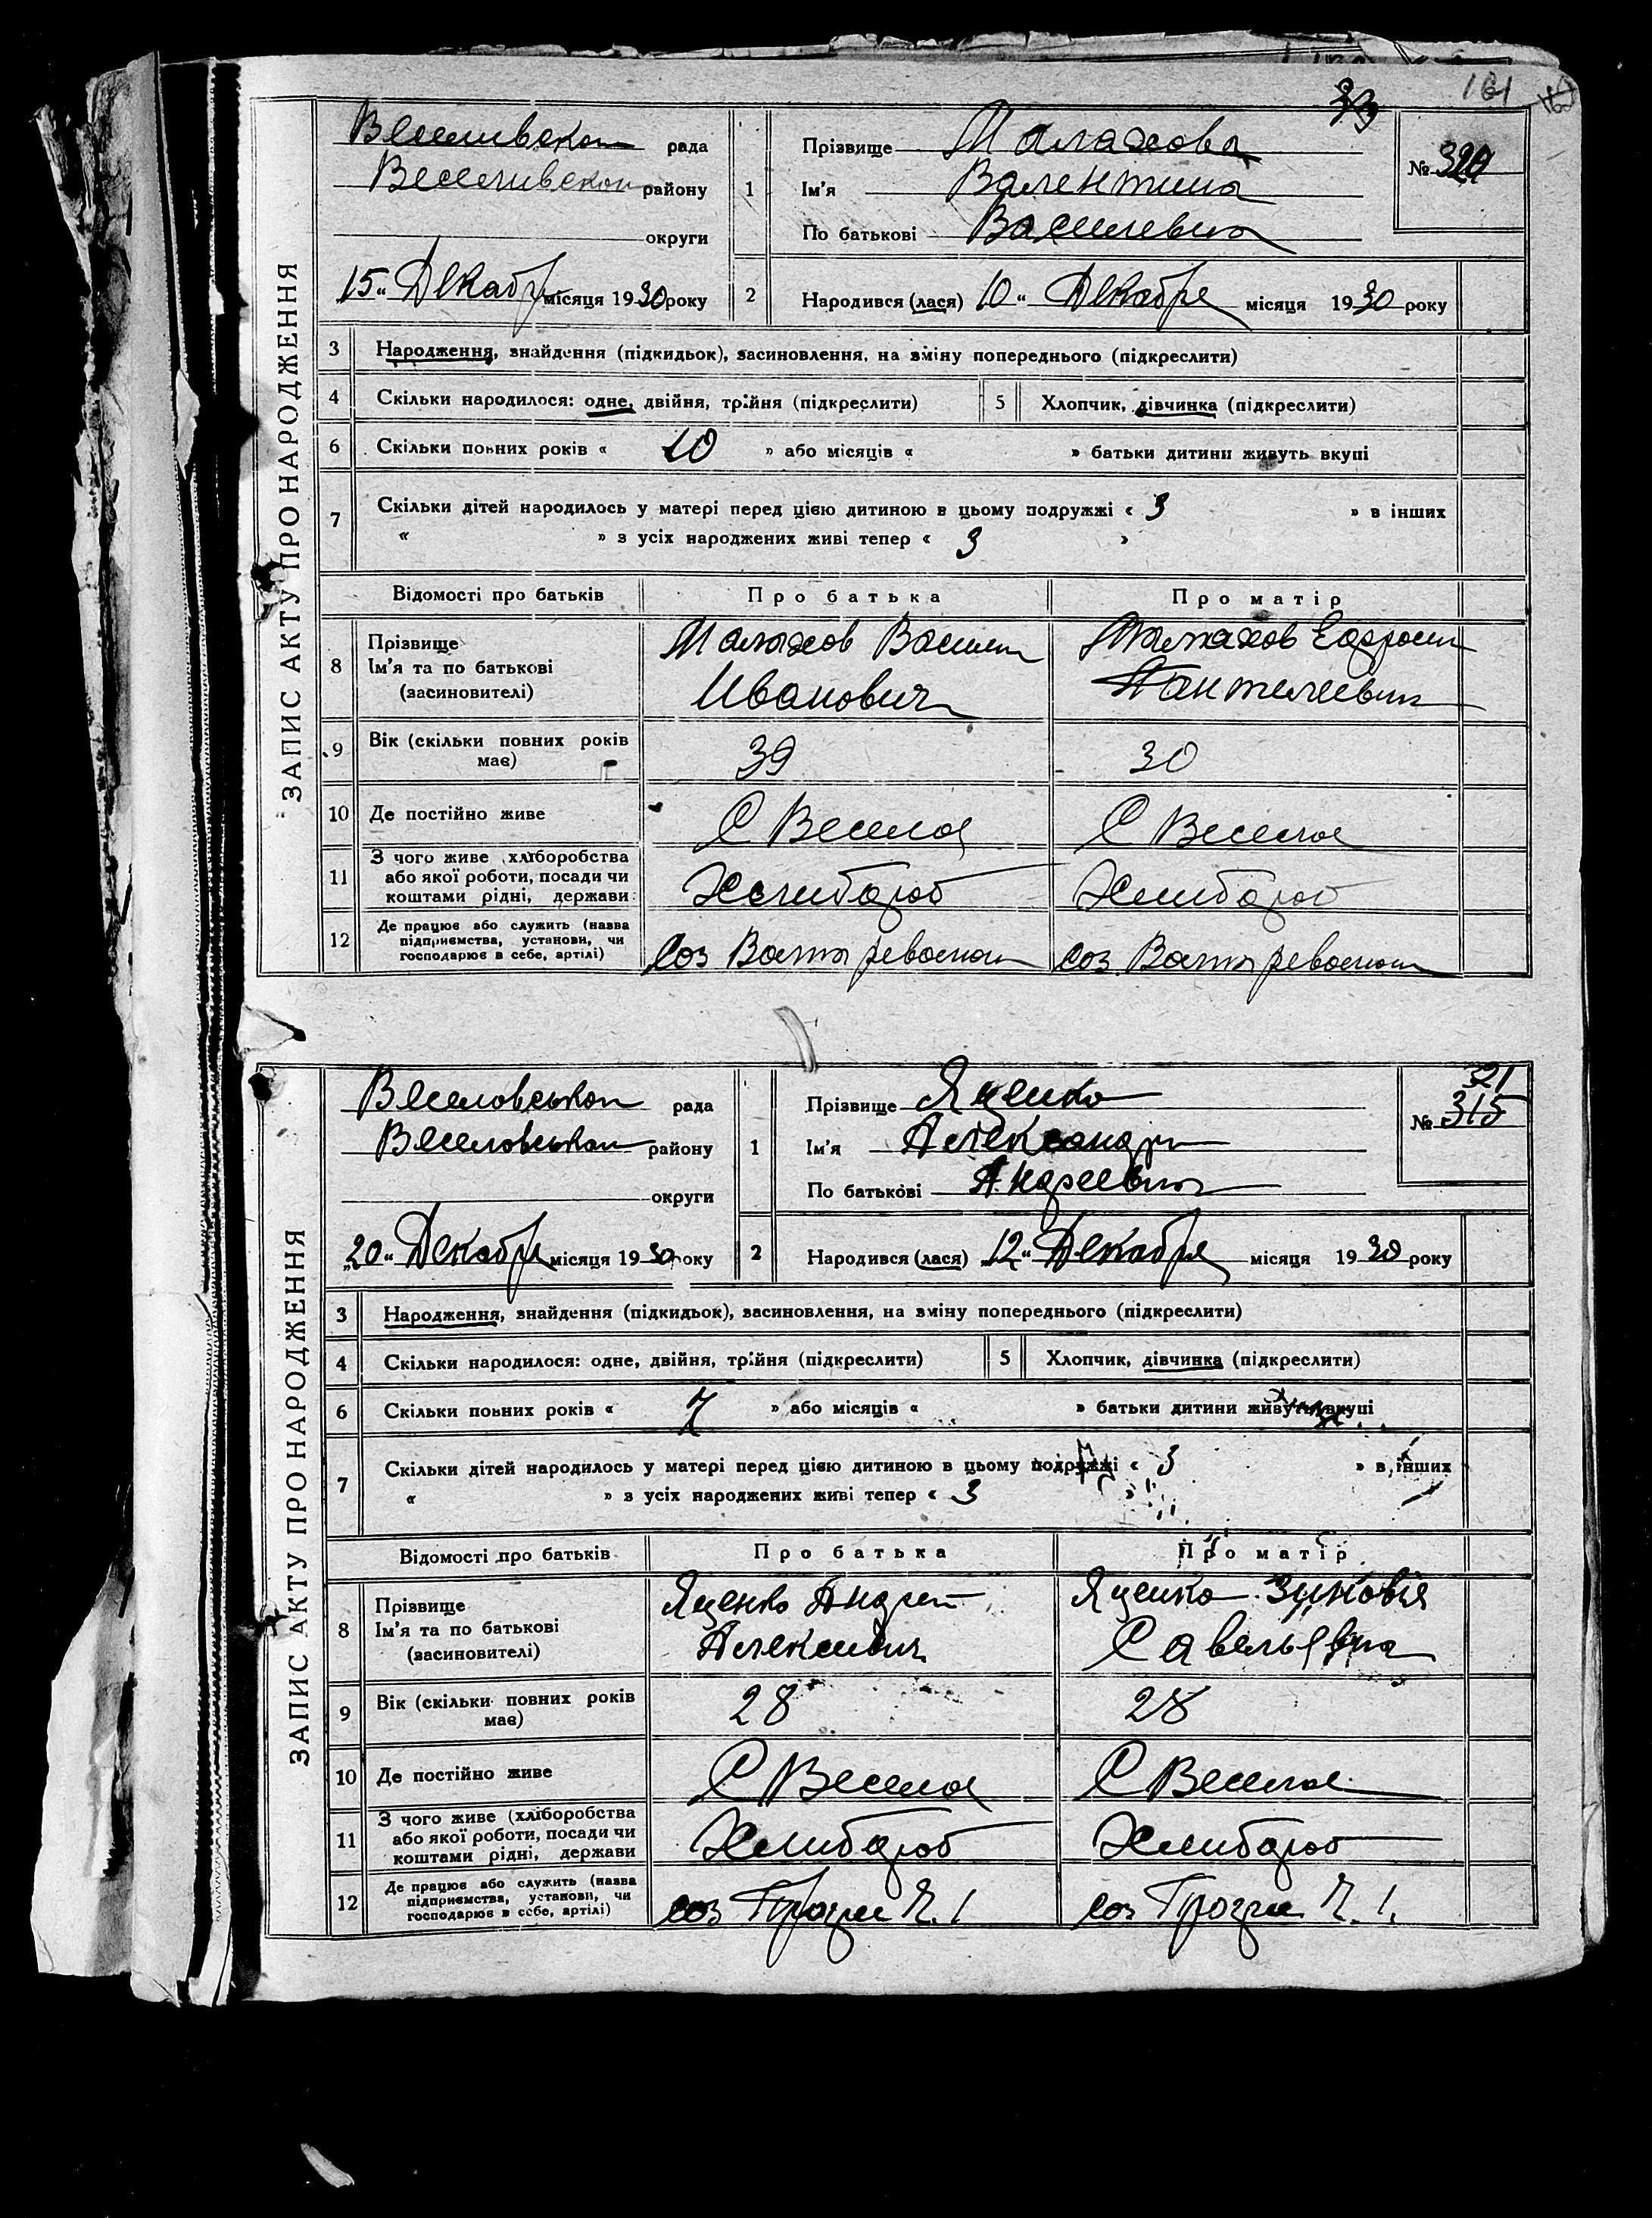 161
ЗАПИС АКТУ ПРО НАРОДЖЕННЯ
Веселивской рада
Веселивской району
округи
„15“ Декабр місяця 1930 року
1
Прізвище Малахова
Ім'я Валентина
По батькові Василевна
№ 320
2 Народився (лася) 10 “ Декабре місяця 1930 року
3 Народження, знайдення (підкидьок), засиновлення, на зміну попереднього (підкреслити)
4 Скільки народилося: одне, двійня, трійня (підкреслити) 5 Хлопчик, дівчинка (підкреслити)
6 Скільки повних років « 10 » або місяців « » батьки дитини живуть вкупі
7 Скільки дітей народилось у матері перед цією дитиною в цьому подружжі « 3 » в інших
« » з усіх народжених живі тепер « 3 »
Відомості про батьків Про батька Про матір
8 Прізвище
Ім'я та по батькові
(засиновителі)
Малахов Василий
Иванович
Малахов Ефросин
Пантелеевна
9 Вік (скільки повних років
має)
39 30
10 Де постійно живе С Веселое С Веселое
11 З чого живе (хліборобства
або якої роботи, посади чи
коштами рідні, держави
Хлибороб Хлибороб
12 Де працює або служить (назва
підприємства, установи, чи
господарює в себе, артілі)
Соз Соз
ЗАПИС АКТУ ПРО НАРОДЖЕННЯ
Веселовськои рада
Веселовськои району
округи
„20“ Декабре місяця 1930 року
1
Прізвище Яценко
Ім'я Александра
По батькові Андреевна
321
№ 315
2 Народився (лася) „12“ Декабря місяця 1930 року
3 Народження, знайдення (підкидьок), засиновлення, на зміну попереднього (підкреслити)
4 Скільки народилося: одне, двійня, трійня (підкреслити) 5 Хлопчик, дівчинка (підкреслити)
6 Скільки повних років « 7 » або місяців « » батьки дитини живуть вкупі
7 Скільки дітей народилось у матері перед цією дитиною в цьому подружжі « 3 » в інших
« » з усіх народжених живі тепер « 3 »
Відомості про батьків Про батька Про матір
8 Прізвище
Ім'я та по батькові
(засиновителі)
Яценко Андрей
Алексеевич
Яценко Зиновія
Савельевна
9 Вік (скільки повних років
має)
28 28
10 Де постійно живе С Веселое С Веселое
11 З чого живе (хліборобства
або якої роботи, посади чи
коштами рідні, держави
Хлибороб Хлибороб
12 Де працює або служить (назва
підприємства, установи, чи
господарює в себе, артілі)
Соз Соз